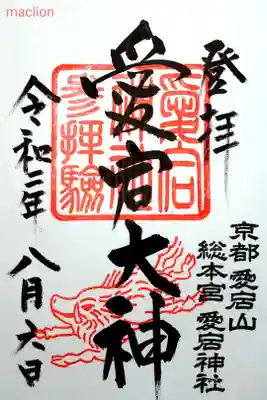 maclion
登拝
愛宕大神
令和二年
八月六日
京都 愛宕山
総本宮 愛宕神社